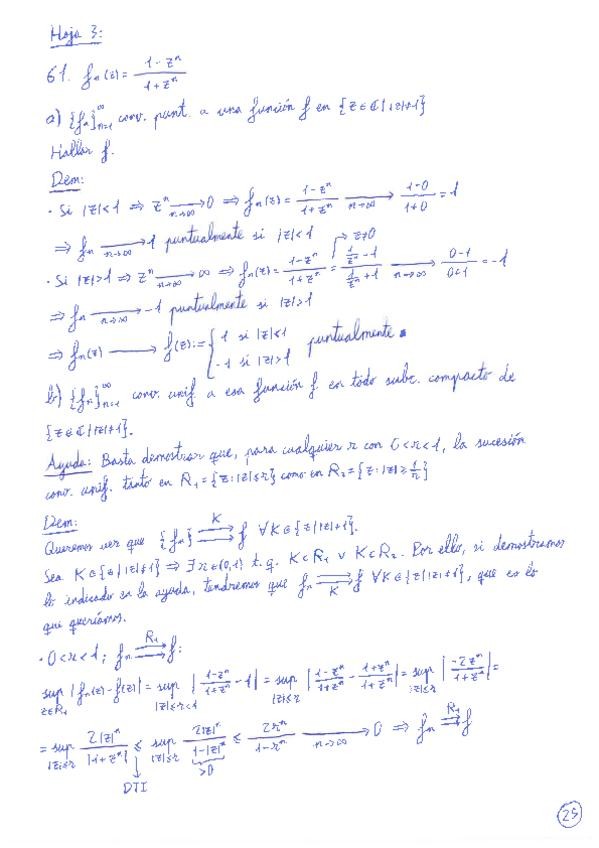 Hoja 3:
61. fₙ(z) = (1 - zⁿ)/(1 + zⁿ)
a) {fₙ}ₙ₌₁^∞ conv. punt. a una función f en {z ∈ ℂ | |z| ≠ 1}
Hallar f.
Dem:
· Si |z| < 1 ⇒ zⁿ →(n→∞) 0 ⇒ fₙ(z) = (1 - zⁿ)/(1 + zⁿ) →(n→∞) (1-0)/(1+0) = 1
⇒ fₙ →(n→∞) 1 puntualmente si |z| < 1
z≠0
· Si |z| > 1 ⇒ zⁿ →(n→∞) ∞ ⇒ fₙ(z) = (1 - zⁿ)/(1 + zⁿ) = (1/zⁿ - 1)/(1/zⁿ + 1) →(n→∞) (0-1)/(0+1) = -1
⇒ fₙ →(n→∞) -1 puntualmente si |z| > 1
⇒ fₙ(z) → f(z) := { 1 si |z| < 1 ; -1 si |z| > 1 puntualmente.
b) {fₙ}ₙ₌₁^∞ conv. unif. a esa función f en todo subc. compacto de
{z ∈ ℂ | |z| ≠ 1}.
Ayuda: Basta demostrar que, para cualquier r con 0 < r < 1, la sucesión
conv. unif. tanto en R₁ = {z : |z| ≤ r} como en R₂ = {z : |z| ≥ 1/r}
Dem:
Queremos ver que {fₙ} ⇉(K) f ∀K ⊂ {z | |z| ≠ 1}.
Sea K ⊂ {z | |z| ≠ 1} ⇒ ∃ r ∈ (0,1) t.q. K ⊂ R₁ ∨ K ⊂ R₂. Por ello, si demostramos
lo indicado en la ayuda, tendremos que fₙ ⇉(K) f ∀K ⊂ {z | |z| ≠ 1}, que es lo
que queríamos.
· 0 < r < 1; fₙ ⇉(R₁) f:
sup(z∈R₁) |fₙ(z) - f(z)| = sup(|z|≤r<1) |(1 - zⁿ)/(1 + zⁿ) - 1| = sup(|z|≤r) |(1 - zⁿ)/(1 + zⁿ) - (1 + zⁿ)/(1 + zⁿ)| = sup(|z|≤r) |(-2zⁿ)/(1 + zⁿ)| =
= sup(|z|≤r) 2|z|ⁿ/|1 + zⁿ| ≤ sup(|z|≤r) 2|z|ⁿ/(1 - |z|ⁿ) ≤ 2rⁿ/(1 - rⁿ) →(n→∞) 0 ⇒ fₙ ⇉(R₁) f
>0
DTI
25